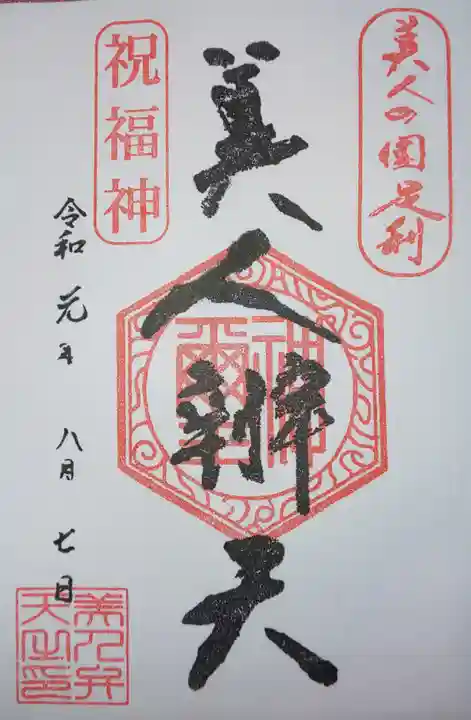 美人の國足利
美人辨天
神璽
祝福神
令和元年 八月 七日
美人弁
天之印